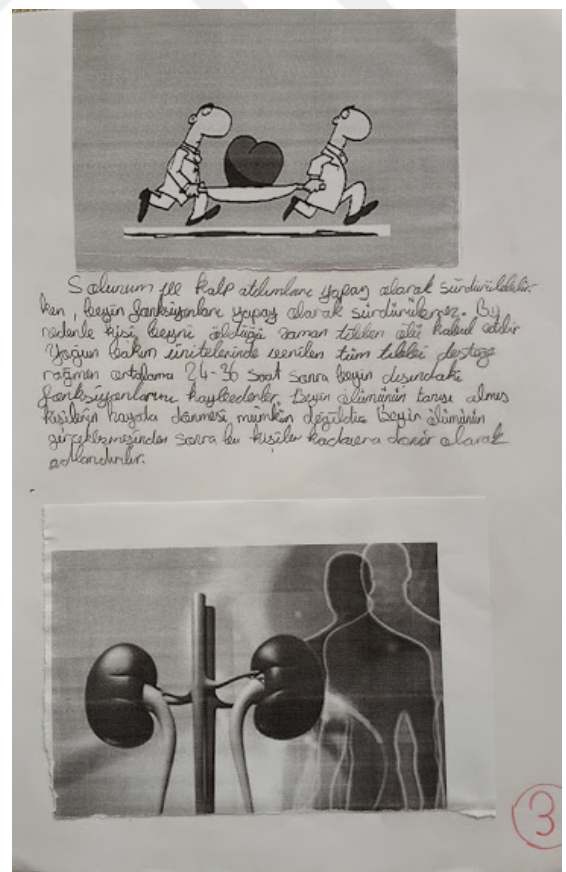 Solunum ile kalp atılımları yapay olarak sürdürülebilir-
ken, beyin fonksiyonları yapay olarak sürdürülemez. Bu
nedenle kişi beyni öldüğü zaman tıbben ölü kabul edilir
Yoğun bakım ünitelerinde verilen tüm tıbbi desteğe
rağmen ortalama 24-36 saat sonra beyin dışındaki
fonksiyonlarını kaybederler. Beyin ölümünün tanısı almış
kişilerin hayata dönmesi mümkün değildir. Beyin ölümünün
gerçekleşmesinden sonra bu kişiler kadavra donör olarak
adlandırılır.
3